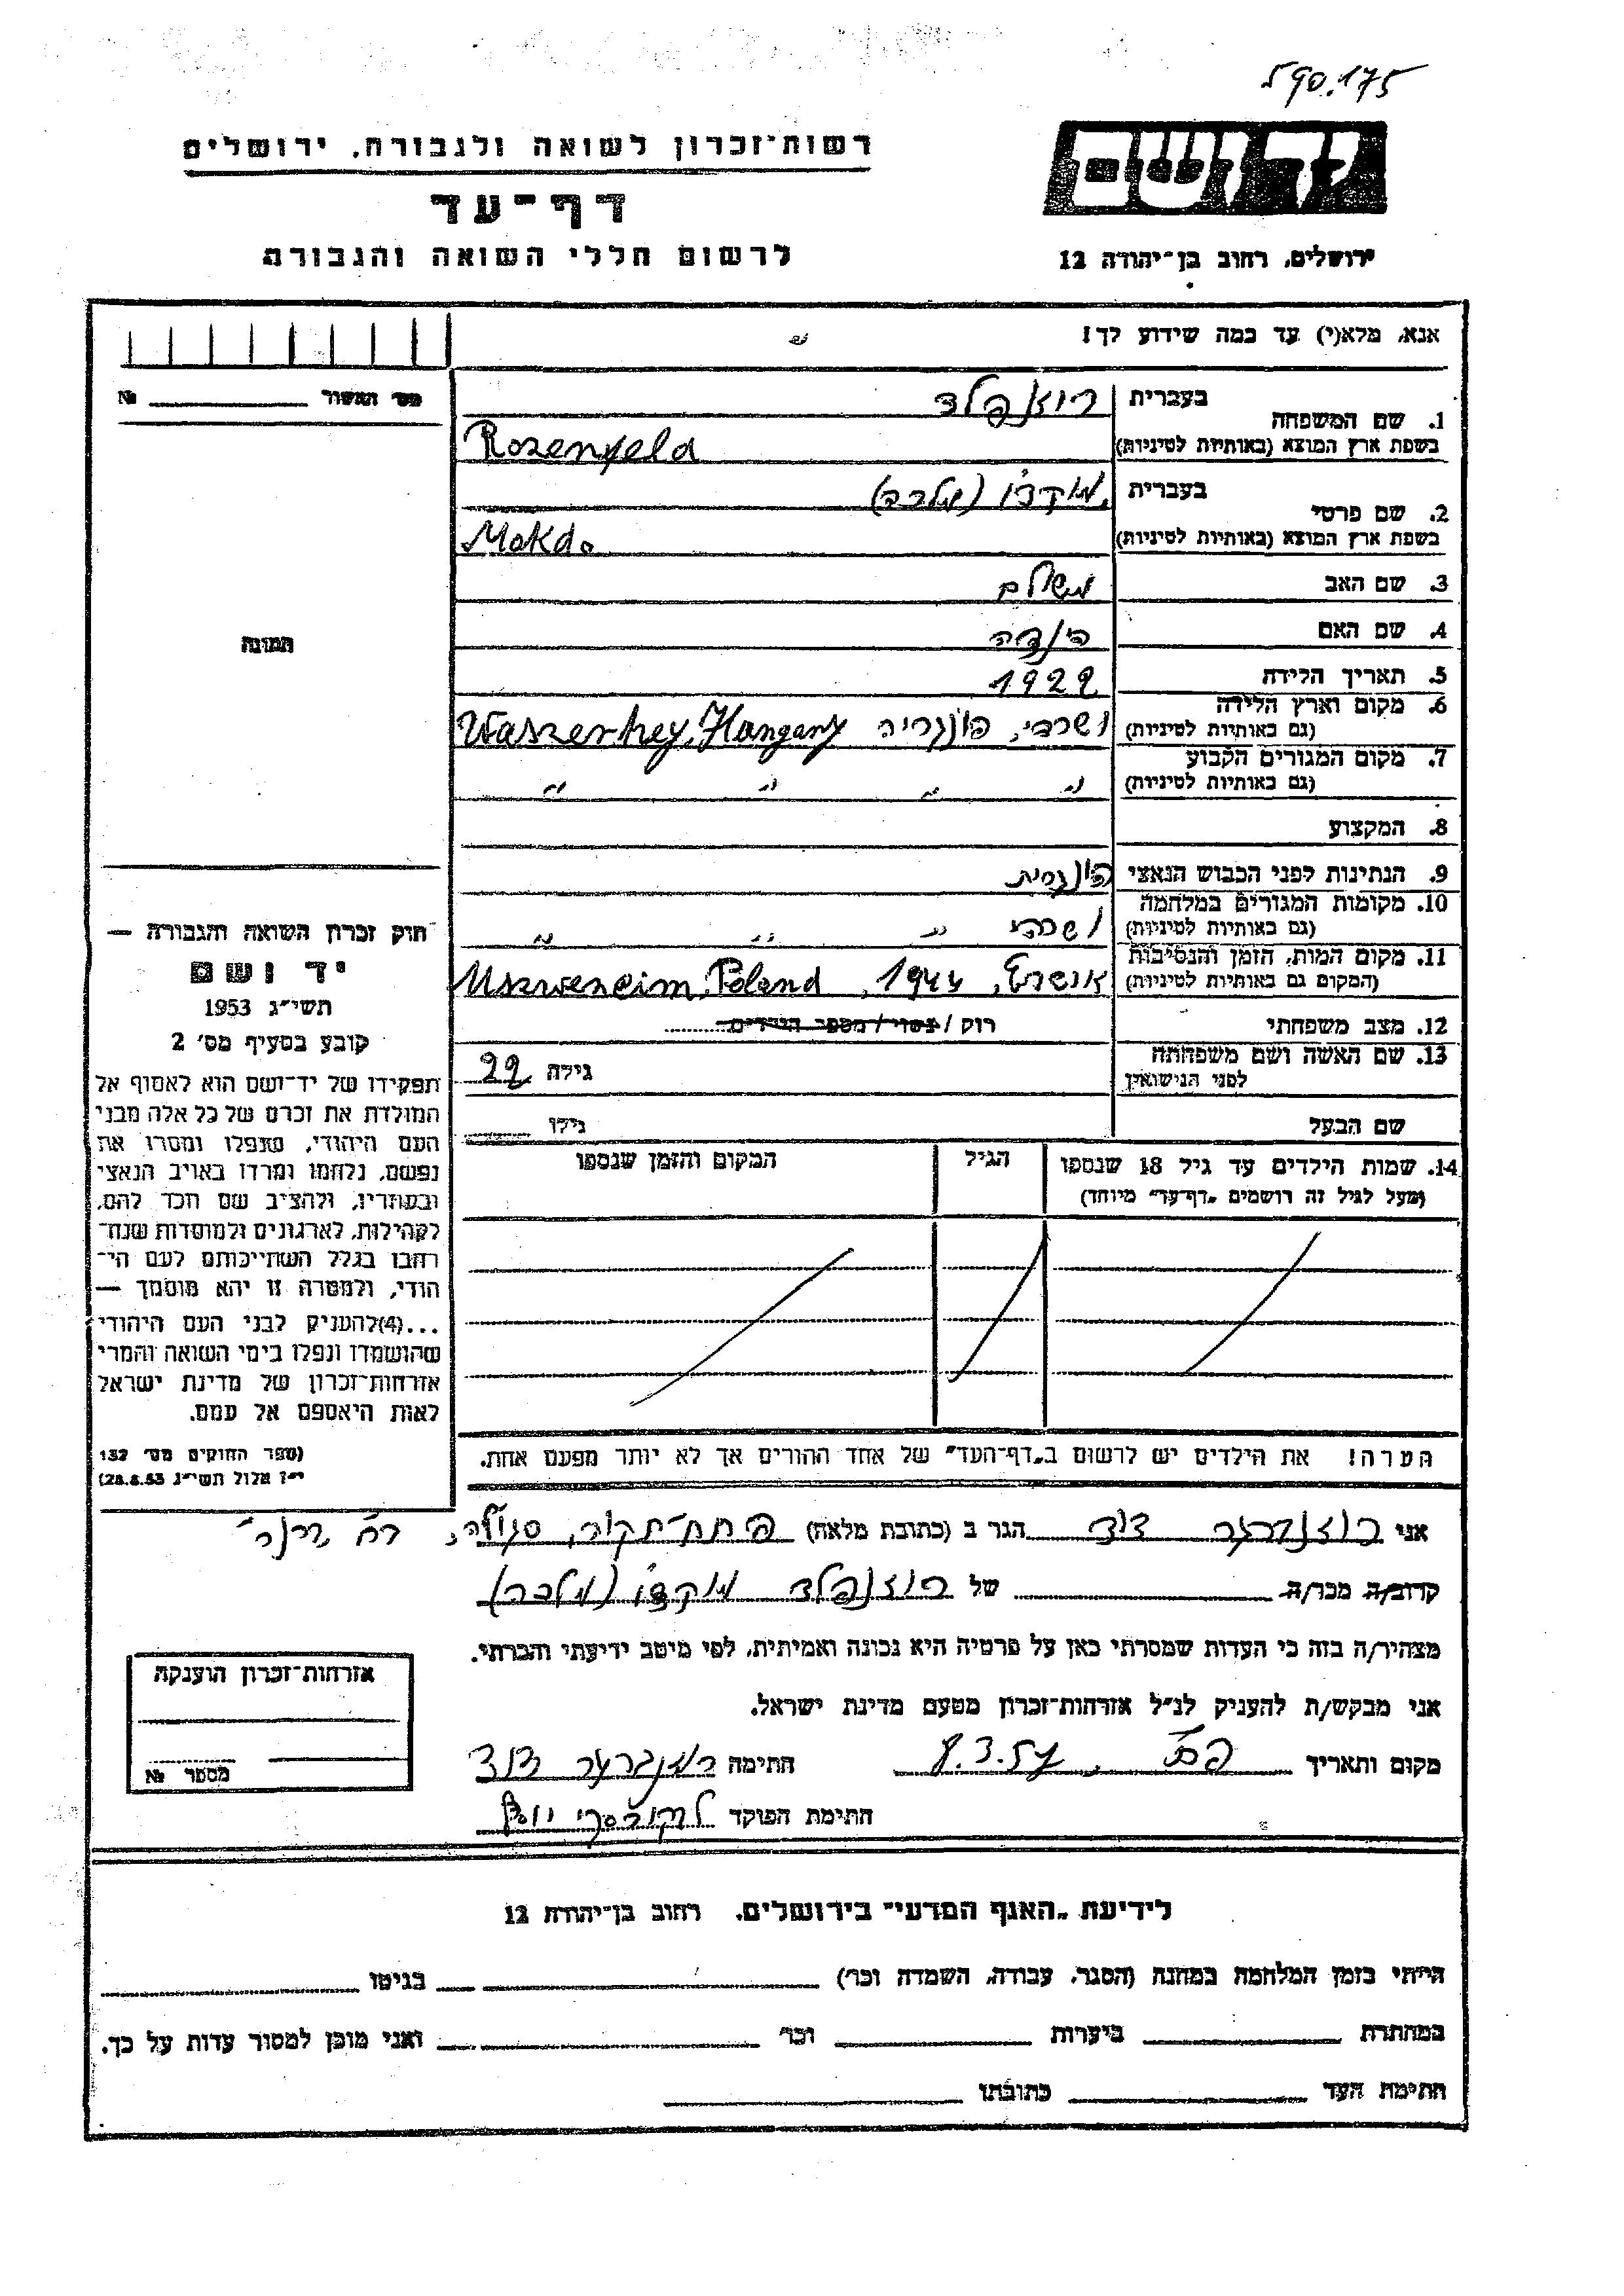 590.175
יד ושם
רשות־זכרון לשואה ולגבורה, ירושלים
דף־עד
לרשום חללי השואה והגבורה
ירושלים, רחוב בן־יהודה 12
אנא, מלא(י) עד כמה שידוע לך!
מס' האשור №
1. שם המשפחה בעברית רוזנפלד
בשפת ארץ המוצא (באותיות לטיניות) Rozenfeld
2. שם פרטי בעברית מוקדו (מלכה)
בשפת ארץ המוצא (באותיות לטיניות) Mokdo
3. שם האב משולם
4. שם האם הינדה
5. תאריך הלידה 1922
6. מקום וארץ הלידה ושרהי, הונגריה Waszerhey, Hangary
(גם באותיות לטיניות)
7. מקום המגורים הקבוע
(גם באותיות לטיניות) " " " "
8. המקצוע
9. הנתינות לפני הכבוש הנאצי הונגרית
10. מקומות המגורים במלחמה
(גם באותיות לטיניות) ושרהי " " "
11. מקום המות, הזמן והנסיבות
(המקום גם באותיות לטיניות) 1944, Uszwencim, Poland
12. מצב משפחתי רוק / נשוי / מספר הילדים
13. שם האשה ושם משפחתה
לפני הנישואין גילה 22
שם הבעל גילו
14. שמות הילדים עד גיל 18 שנספו הגיל המקום והזמן שנספו
(מעל לגיל זה רושמים „דף־עד" מיוחד)
הערה! את הילדים יש לרשום ב„דף־העד" של אחד ההורים אך לא יותר מפעם אחת.
תמונה
חוק זכרון השואה והגבורה —
יד ושם
תשי"ג 1953
קובע בסעיף מס' 2
תפקידו של יד־ושם הוא לאסוף אל
המולדת את זכרם של כל אלה מבני
העם היהודי, שנפלו ומסרו את
נפשם, נלחמו ומרדו באויב הנאצי
ובעוזריו, ולהציב שם וזכר להם,
לקהילות, לארגונים ולמוסדות שנח־
רבו בגלל השתייכותם לעם הי־
הודי, ולמטרה זו יהא מוסמך —
...(4)להעניק לבני העם היהודי
שהושמדו ונפלו בימי השואה והמרי
אזרחות־זכרון של מדינת ישראל
לאות היאספם אל עמם.
(ספר החוקים מס' 132
י"ז אלול תשי"ג 28.8.53)
אני רוזנברגר דוד הגר ב (כתובת מלאה) פתח־תקוה, סגולה,
קרוב/ה מכר/ה של רוזנפלד מוקדו (מלכה)
מצהיר/ה בזה כי העדות שמסרתי כאן על פרטיה היא נכונה ואמיתית, לפי מיטב ידיעתי והכרתי.
אני מבקש/ת להעניק לנ"ל אזרחות־זכרון מטעם מדינת ישראל.
מקום ותאריך פ"ת, 8.3.57 חתימה רוזנברגר דוד
חתימת הפוקד יוסף
אזרחות־זכרון הוענקה
מספר №
לידיעת „האגף המדעי" בירושלים, רחוב בן־יהודה 12
הייתי בזמן המלחמה במחנה (הסגר, עבודה, השמדה וכו') בגיטו
במחתרת ביערות וכו' ואני מוכן למסור עדות על כך.
חתימת העד כתובתו